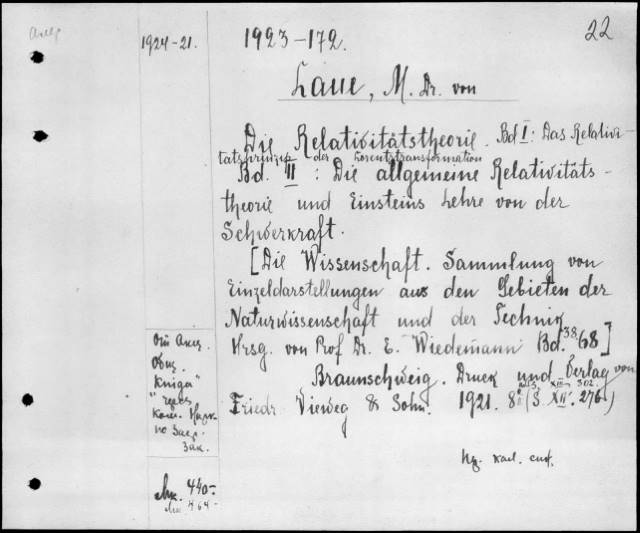 22
1924-21.
1923-172.
Laue, M. Dr. von
Die Relativitätstheorie. Bd I: Das Relativi-
tätsprinzip der Lorentztransformation
Bd. II: Die allgemeine Relativitäts-
theorie und Einsteins Lehre von der
Schwerkraft.
[Die Wissenschaft. Sammlung von
Einzeldarstellungen aus den Gebieten der
Naturwissenschaft und der Technik
Hrsg. von Prof Dr. E. Wiedemann Bd. 38, 68]
Braunschweig. Druck und Verlag von
Friedr Vieweg & Sohn. 1921. 8° (S. XII. 276)
XII 302.
От Акц.
Общ.
Книга"
"через
Ком. Нарк-
по Загр.
Зак.
Мк. 440-
464-